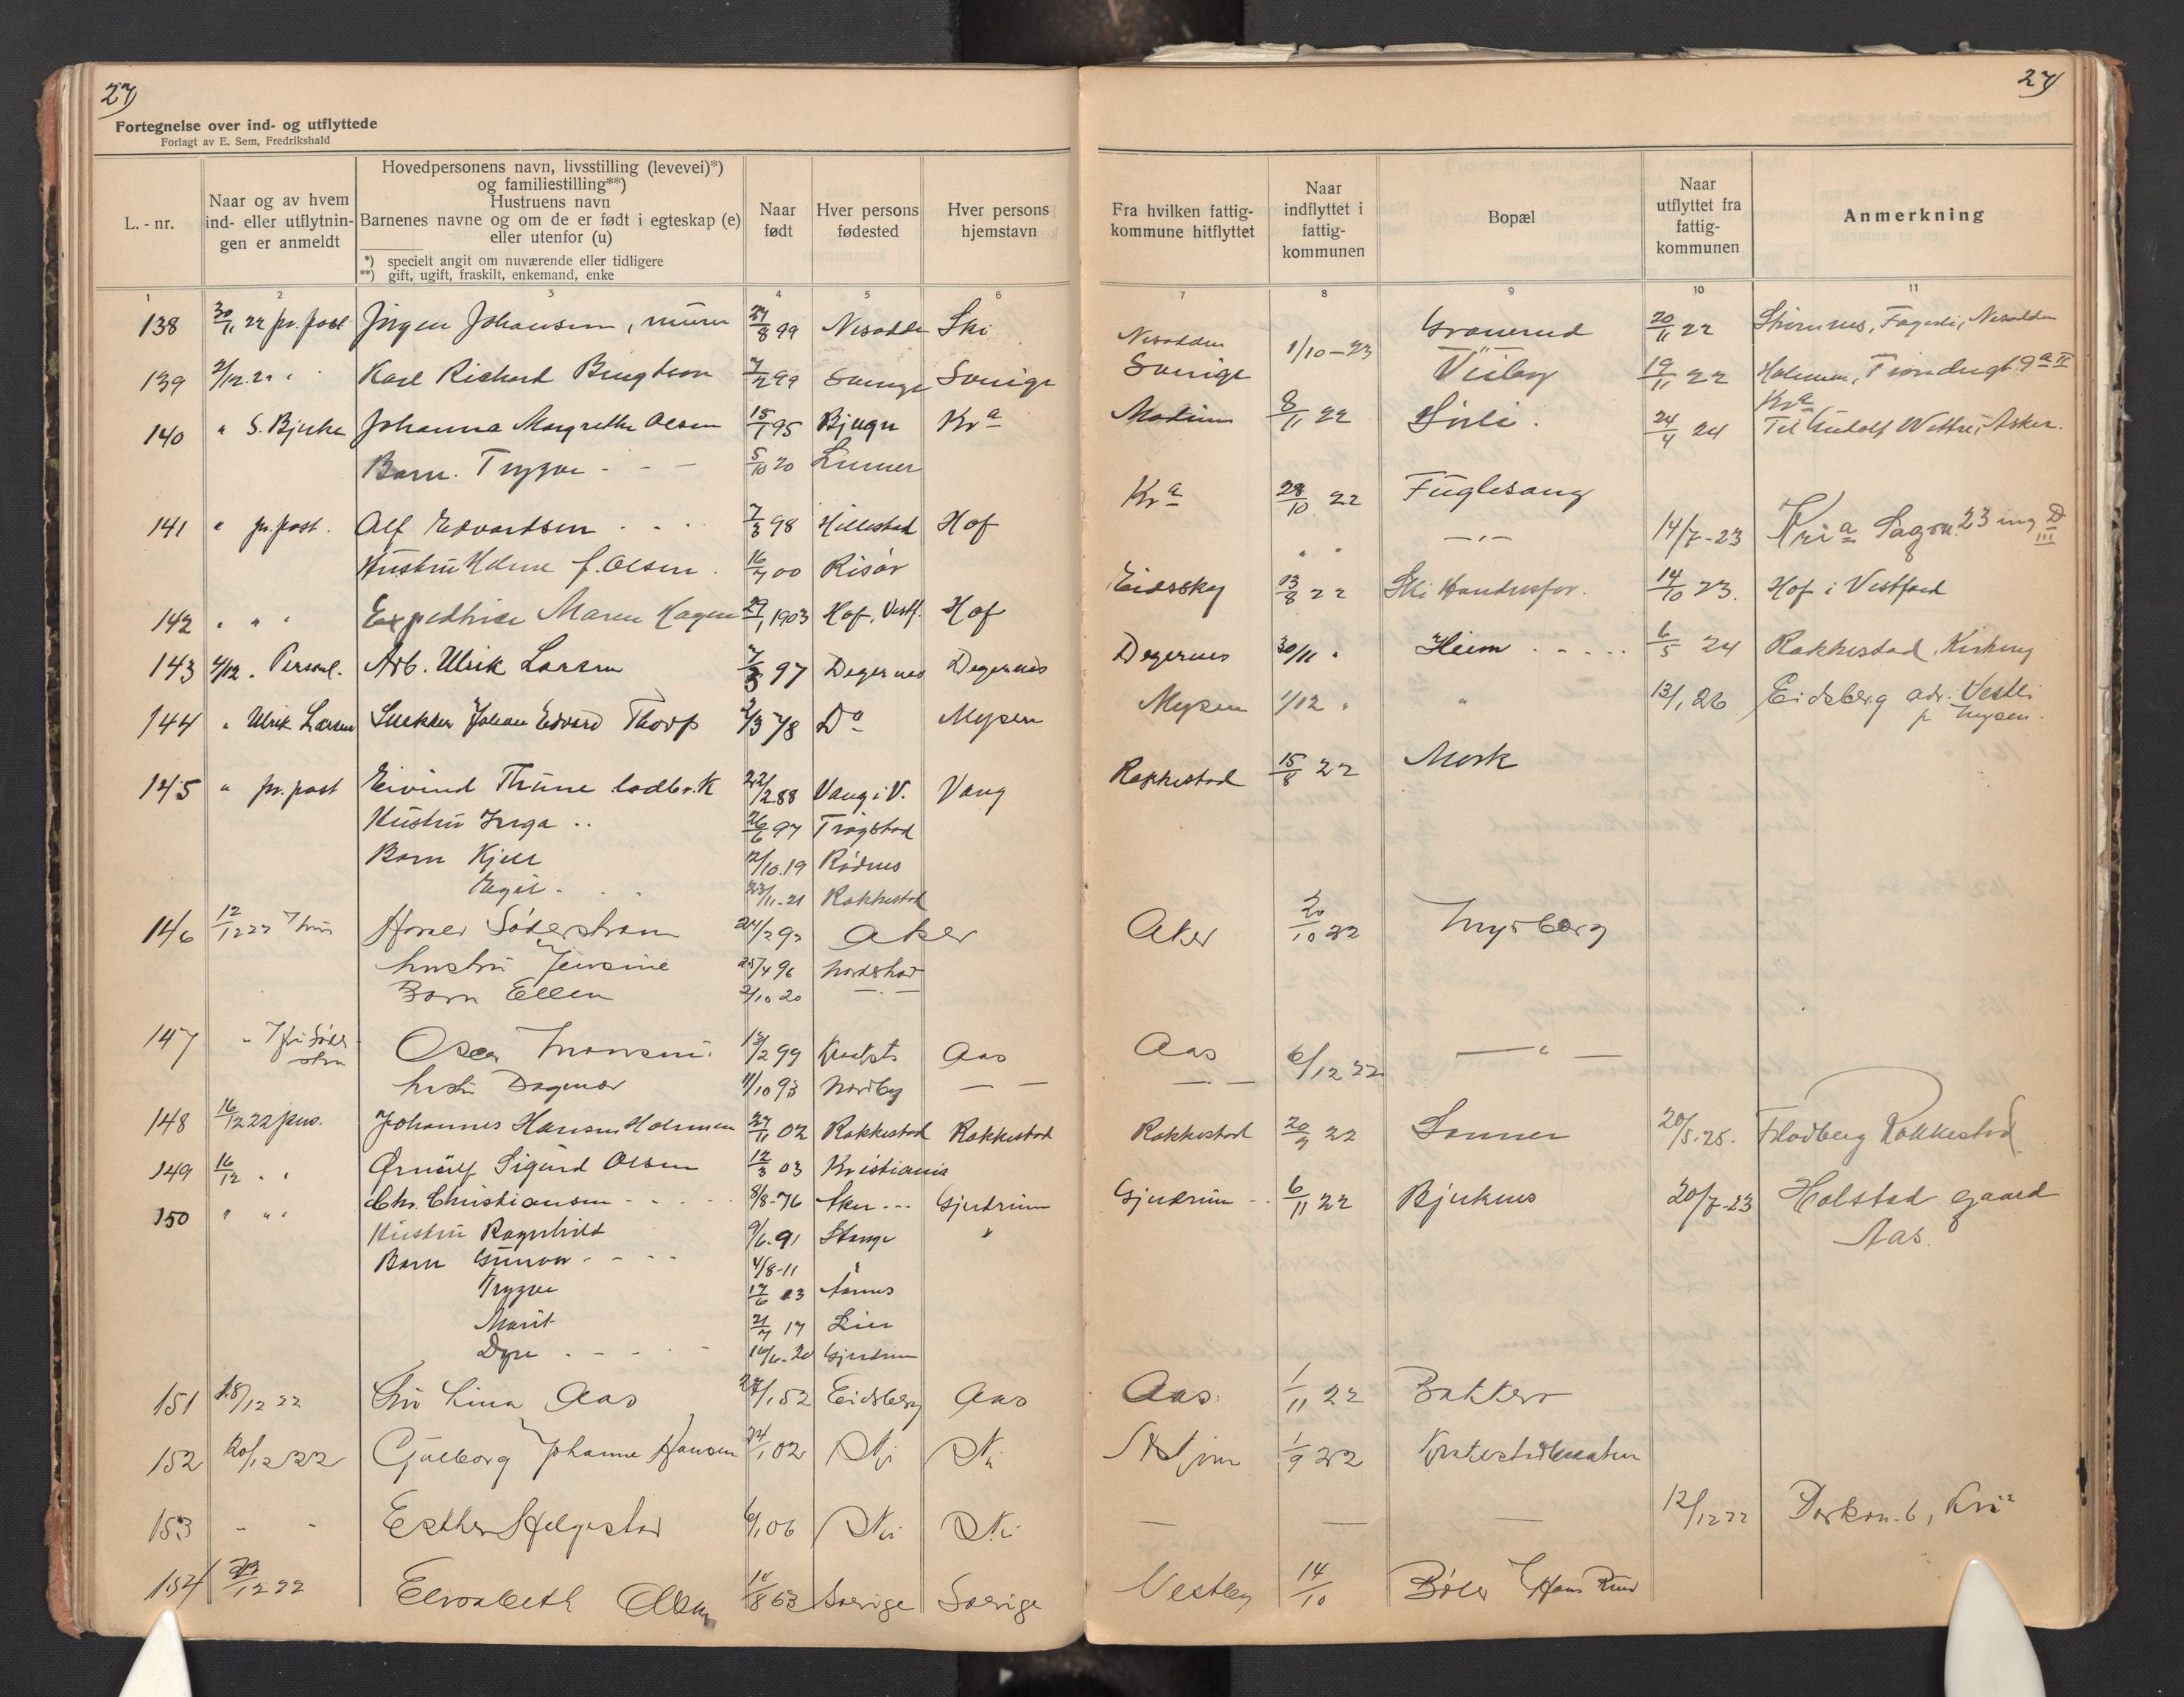 27
27
Fortegnelse over ind- og utflyttede
Forlagt av E. Sem, Fredrikshald
L. - nr.
Naar og av hvem
ind- eller utflytnin-
gen er anmeldt
Hovedpersonens navn, livsstilling (levevei)*)
og familiestilling**)
Hustruens navn
Barnenes navne og om de er født i egteskap (e)
eller utenfor (u)
*) specielt angit om nuværende eller tidligere
**) gift, ugift, fraskilt, enkemand, enke
Naar
født
Hver persons
fødested
Hver persons
hjemstavn
Fra hvilken fattig-
kommune hitflyttet
Naar
indflyttet i
fattig-
kommunen
Bopæl
Naar
utflyttet fra
fattig-
kommunen
Anmerkning
1 2 3 4 5 6 7 8 9 10 11
138 30/11 22 pr. post Jørgen Johansen, murer 27/8 99 Nesodden Ski Nesodden 1/10-23 Granerud 20/11 22 Fagerli, Nesodden
139 2/12.22 " Karl Richard Bengtson 7/2 99 Sverige Sverige Sverige Visby 19/11 22 Holmen,
Kra
140 " S. Bjerke Johanna Margrethe Olsen 15/1 95 Bjugn Kra Modum 8/11 22 24/4 24 Til Rudolf Wettre, Asker.
Barn. Trygve - - - 5/10 20 Lunner
141 " pr. post. Alf Edvardsen . . . 7/3 98 Hillestad Hof Kra 28/10 22 Fuglesang 14/7-23 Kria 23 ing D III
Hustru f. Olsen . 16/7 00 Risør " " — " —
142 " " " Expeditrice Maren Hagen 29/1 1903 Hof, Vestf. Hof Eidsskog 13/8 22 Ski Handelsfor. 14/10 23. Hof i Vestfold
143 4/12 . Personl. Arb. Ulrik Larsen 7/3 97 Degernes Degernes Degernes 30/11 " Heim . . . . . 6/5 24 Rakkestad, Kirkeng
144 " Ulrik Larsen Snekker Johan Edvard Thorp 2/3 78 Do Mysen Mysen 1/12 " " 13/1 26 Eidsberg adr. Vestli
p. Mysen.
145 " pr. post Eivind Thune 22/2 88 Vang i V. Vang Rakkestad 15/8 22 Mork
Hustru Inga .. 26/6 97 Trøgstad
Barn Kjell 12/10.19 Rødnes
Egil . . . 23/11-21 Rakkestad
146 12/12 22 Harald Söderstrøm 24/2 92 Aker Aker 20/10 22 Myrberg
hustru Jensine 25/4 96 Nordstrand
Barn Ellen 2/10 20 — " —
147 " Oscar 13/2 99 Kraakst. Aas Aas 6/12 22 — " —
hustru Dagmar 11/10 93 Nordby — — — " —
148 16/12 22 pers. Johannes Hansen Holmen 27/11 02 Rakkestad Rakkestad Rakkestad 20/9 22 Sonner 20/5.25. Flodberg Rakkestad
149 16/12 " " Ørnulf Sigurd Olsen 12/3 03 Kristiania
150 " " " Chr. Christiansen - - - 8/8-76 Gjerdrum Gjerdrum - - 6/11 22 Bjerknes 20/7-23 Holstad gaard
Aas.
Hustru Ragnhild 9/6.91 Stange "
Barn Gunvor - - - - 4/8-11 "
Trygve 17/6 13 Aasnes
Marit 21/7 17 Lier
Dyre . - - - 16/6-20 Gjerdrum
151 18/12 22 Fru Lina Aas 27/1 52 Eidsberg Aas Aas. 1/11 22 Bakkero
152 20/12 22 Gulborg Johanne Hansen 24/1 02 Ski Ski 1/9 22
153 - - Esther Helgestad 6/1 06 Ski Ski — — — 12/12 22 6, Kria
154 /12 22 Elisabeth Olsen 14/8 63 Sverige Sverige Vestby 14/10 Bøler Hans Ruud